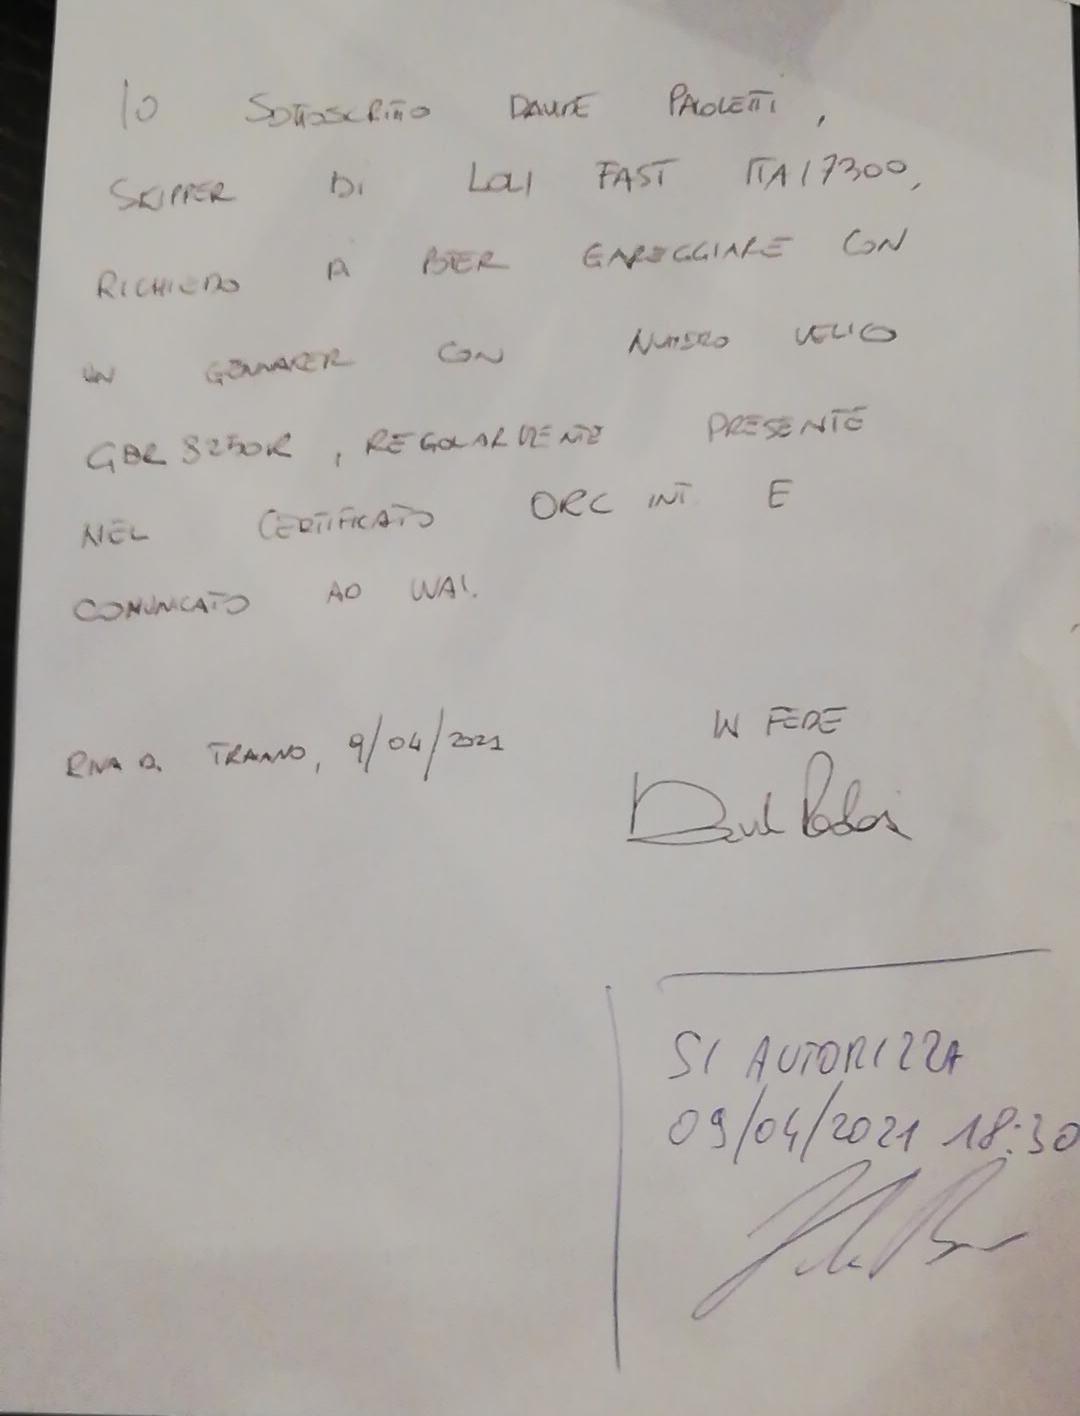 IO SOTTOSCRITTO DAVIDE PAOLETTI,
SKIPPER DI LOLI FAST ITA17300,
RICHIEDO DI POTER GAREGGIARE CON
UN GENNAKER CON NUMERO VELICO
GBR 8250R, REGOLARMENTE PRESENTE
NEL CERTIFICATO ORC INT. E
COMUNICATO AD UVAI.
RIVA DI TRAIANO, 9/04/2021
IN FEDE
SI AUTORIZZA
09/04/2021 18:30